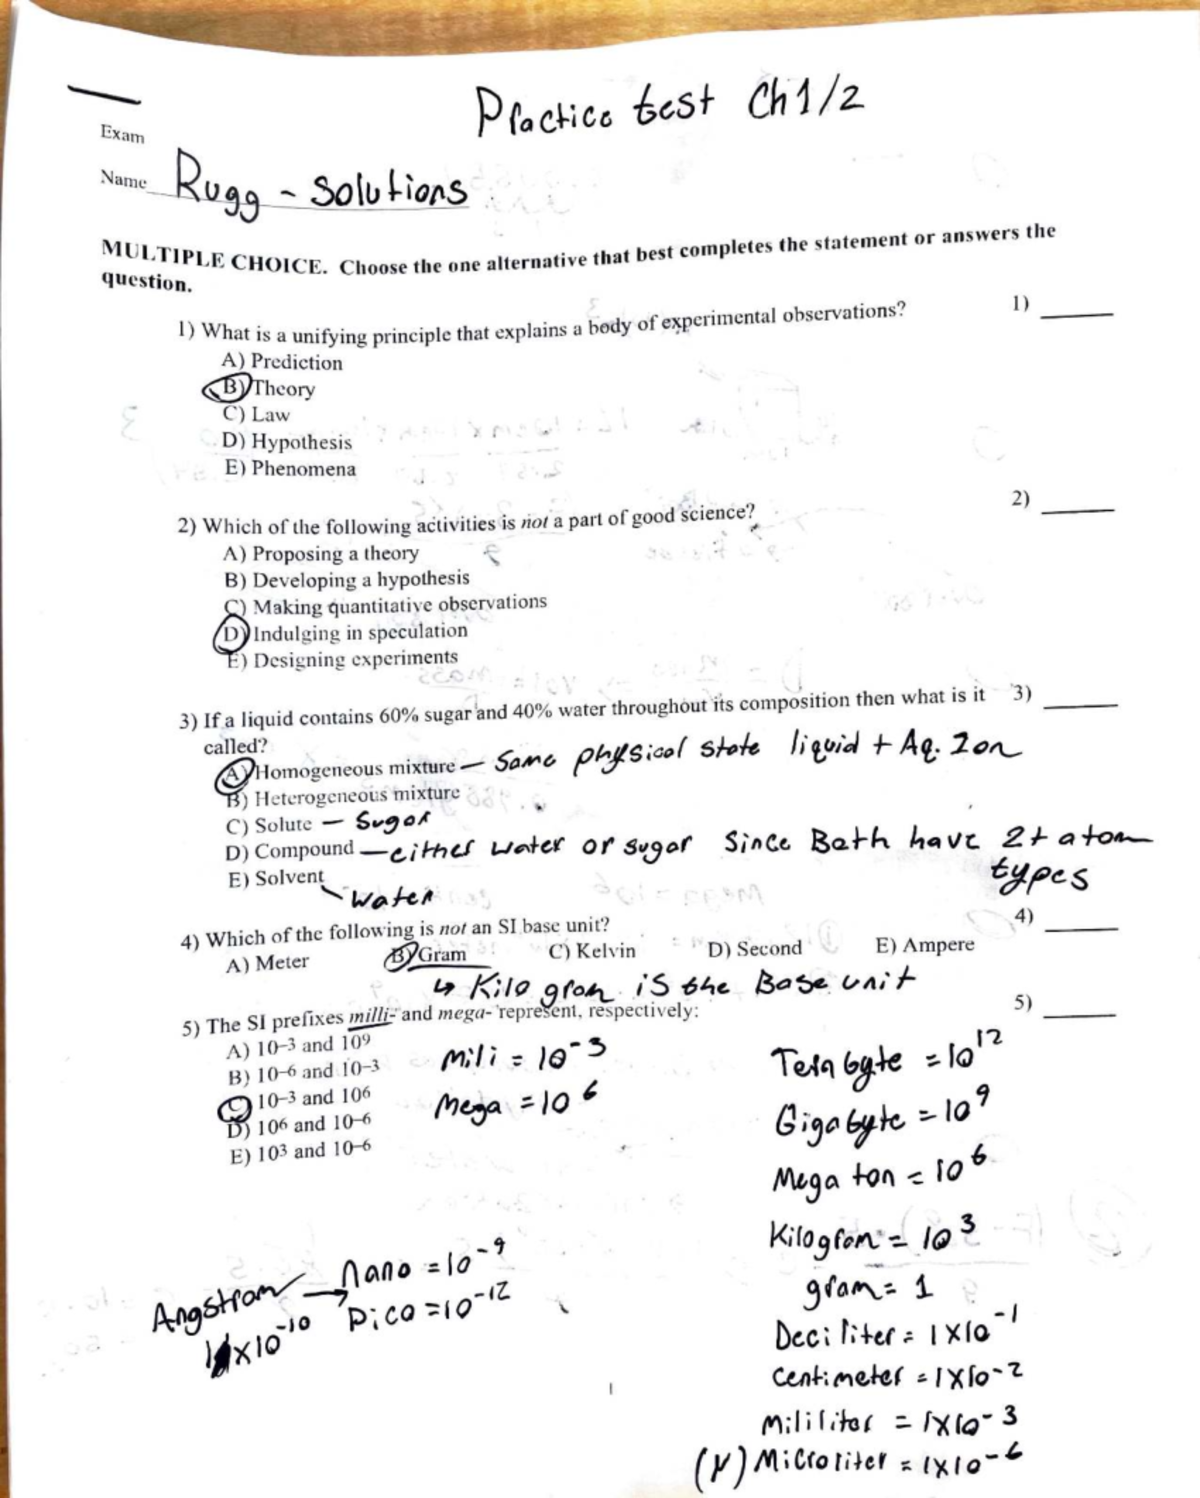 Practice test Ch1/2
Exam
Name Rugg - Solutions
MULTIPLE CHOICE. Choose the one alternative that best completes the statement or answers the
question.
1) What is a unifying principle that explains a body of experimental observations? 1)
A) Prediction
B) Theory
C) Law
D) Hypothesis
E) Phenomena
2) Which of the following activities is not a part of good science? 2)
A) Proposing a theory
B) Developing a hypothesis
C) Making quantitative observations
D) Indulging in speculation
E) Designing experiments
3) If a liquid contains 60% sugar and 40% water throughout its composition then what is it 3)
called?
A) Homogeneous mixture — Same physical state liquid + Aq. Ion
B) Heterogeneous mixture
C) Solute — Sugar
D) Compound — either water or sugar Since Both have 2+ atom
types
E) Solvent
water
4) Which of the following is not an SI base unit? 4)
A) Meter B) Gram C) Kelvin D) Second E) Ampere
↳ Kilogram is the Base unit
5) The SI prefixes milli- and mega- represent, respectively: 5)
A) 10-3 and 10⁹
B) 10-6 and 10-3
C) 10-3 and 106
D) 106 and 10-6
E) 10³ and 10-6
Mili = 10⁻³
Mega = 10⁶
Tera byte = 10¹²
Gigabyte = 10⁹
Mega ton = 10⁶
Kilogram = 10³
gram = 1
Deciliter = 1X10⁻¹
Centimeter = 1X10-2
Mililiter = 1X10-3
(μ) Microliter = 1X10-6
Angstrom → nano = 10⁻⁹
1x10⁻¹⁰ Pico = 10⁻¹²
1